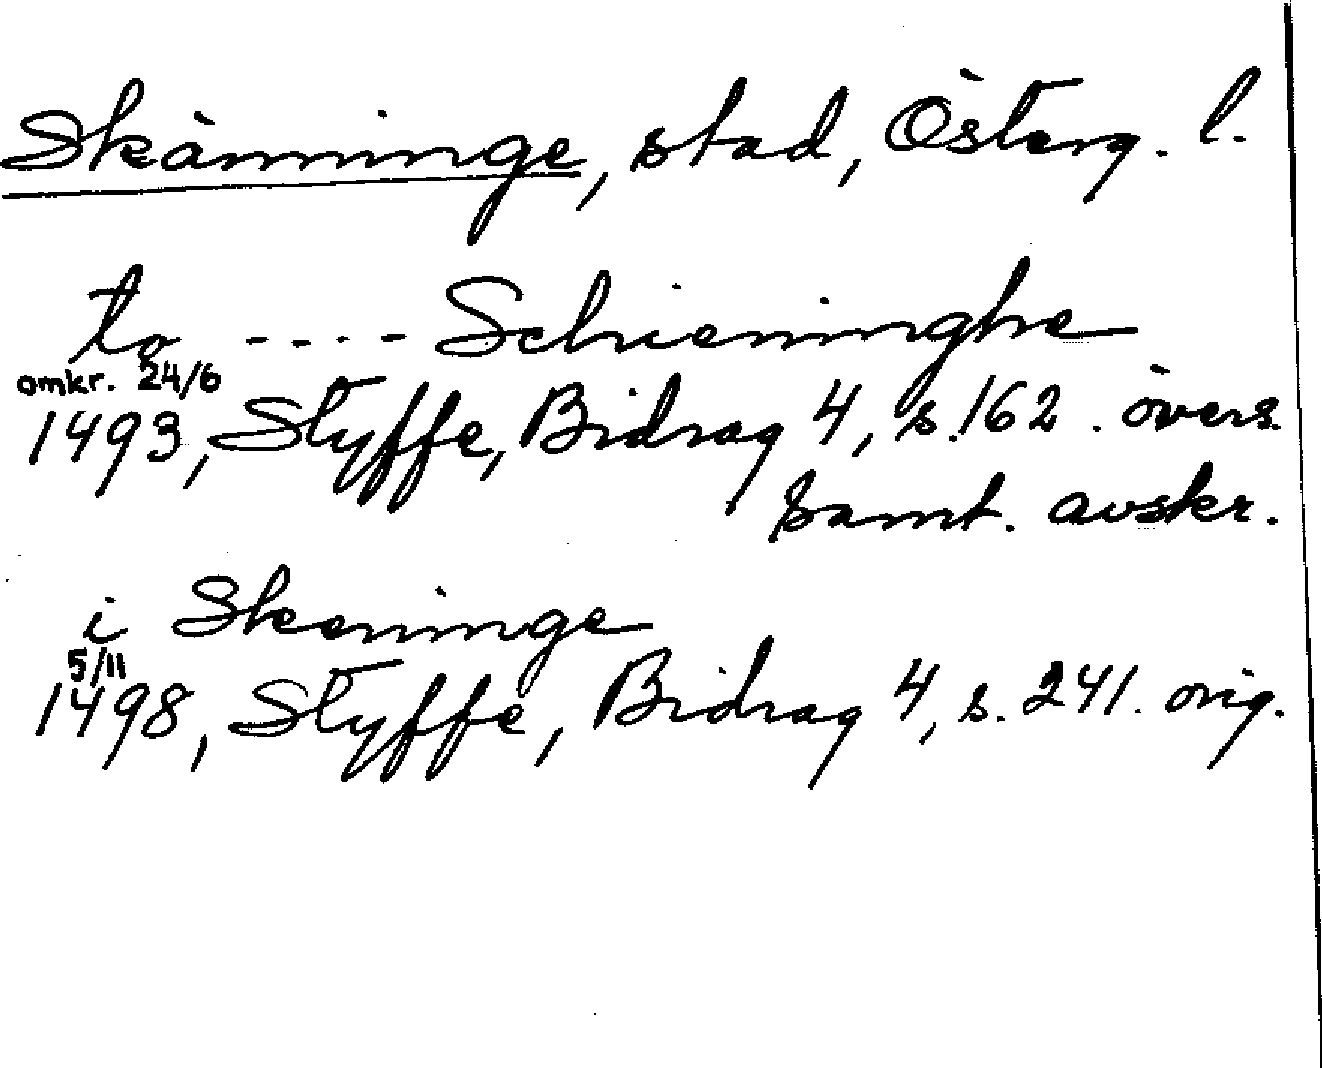 Skänninge, stad, Österg. l.
to ---- Schieninghe
omkr. 24/6
1493, Styffe, Bidrag 4, s. 162. övers.
samt. avskr.
i Skeninge
5/11
1498, Styffe, Bidrag 4, s. 241. orig.